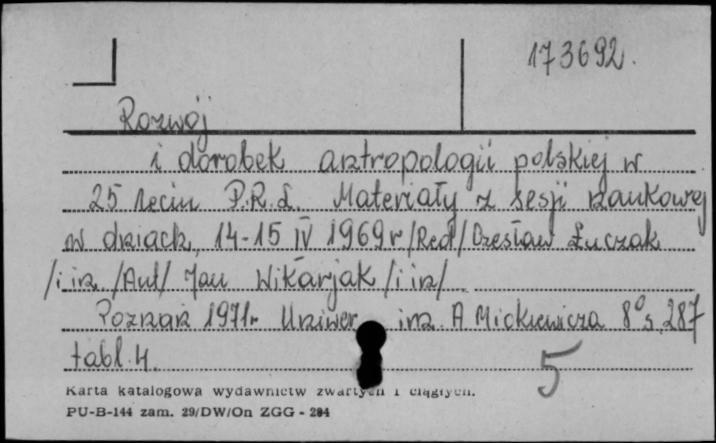 173692.
Rozwój
i dorobek antropologii polskiej w
25 leciu P.R.L. Materiały z sesji naukowej
w dniach, 14-15 IV 1969r /Red/ Czesław Łuczak
/i in. /Aut/ Jan Wikarjak /i in/
Poznań 1971r Uniwer. im. A Mickiewicza 8° s. 287
tabl. 4.
5
Karta katalogowa wydawnictw zwartych i ciągłych.
PU-B-144 zam. 29/DW/On ZGG - 284